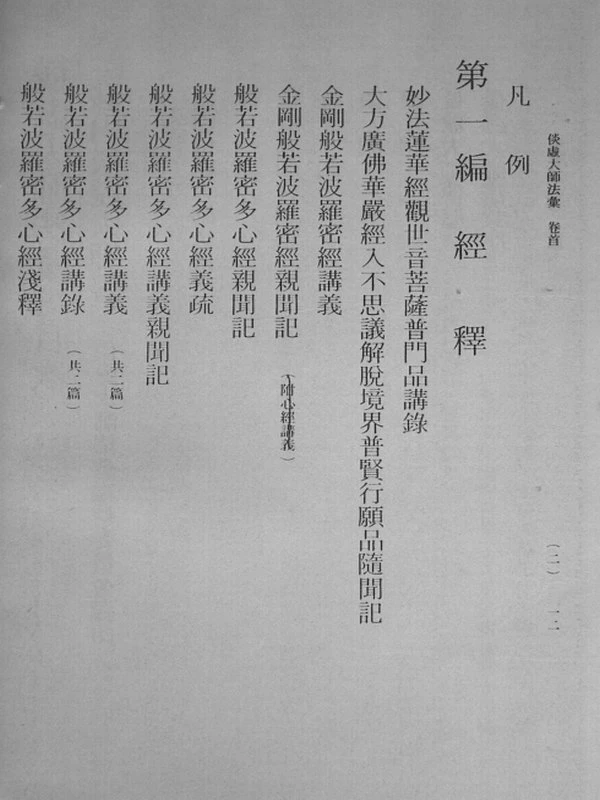 倓虛大師法彙 卷首
(二) 一二
凡例
第一編 經釋
妙法蓮華經觀世音菩薩普門品講錄
大方廣佛華嚴經入不思議解脫境界普賢行願品隨聞記
金剛般若波羅密經講義
金剛般若波羅密經親聞記 (附心經講義)
般若波羅密多心經親聞記
般若波羅密多心經義疏
般若波羅密多心經講義親聞記
般若波羅密多心經講義 (共二篇)
般若波羅密多心經講錄 (共二篇)
般若波羅密多心經淺釋